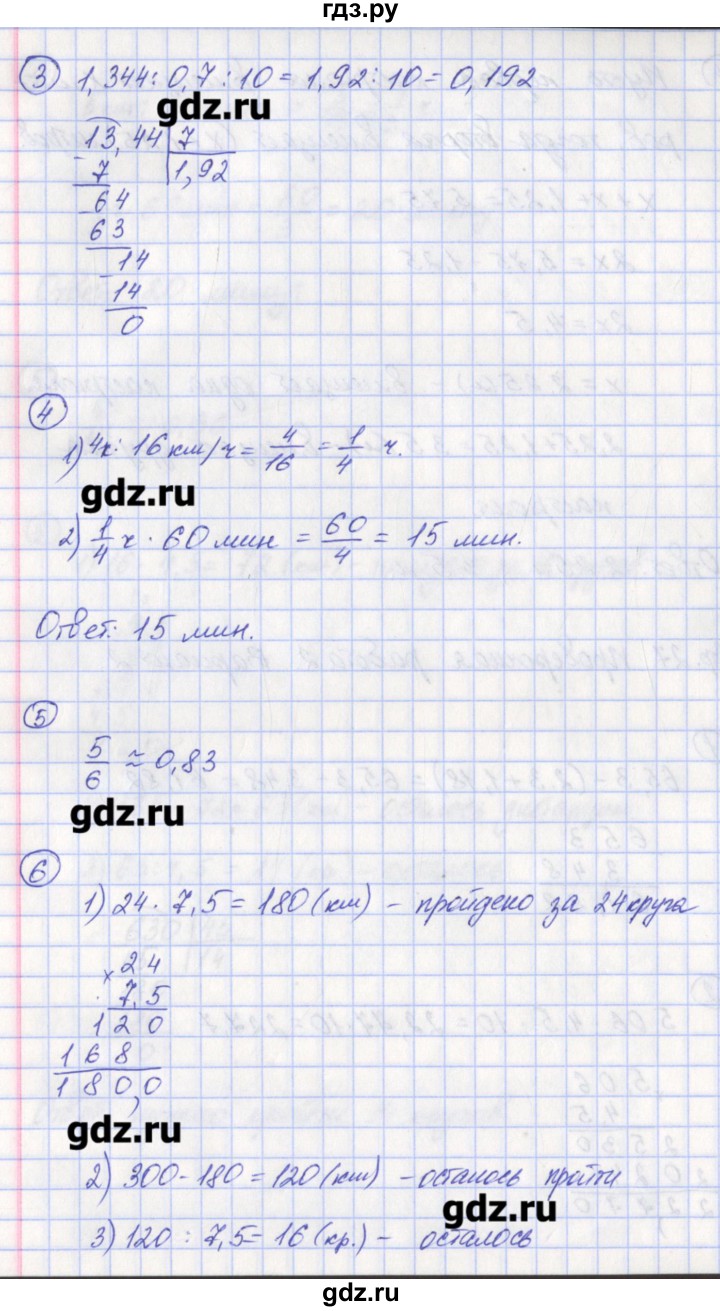 гдз.ру
3 1,344 : 0,7 : 10 = 1,92 : 10 = 0,192
gdz.ru
13,44 | 7
7 1,92
64
63
14
14
0
4
1) 4к: 16 км/ч = 4/16 = 1/4 ч.
gdz.ru
2) 1/4 ч · 60 мин = 60/4 = 15 мин.
Ответ: 15 мин.
5
5/6 ≈ 0,83
gdz.ru
6
1) 24 · 7,5 = 180 (км) – пройдено за 24 круга
× 24
7,5
120
168
180,0
gdz.ru
2) 300 - 180 = 120 (км) – осталось пройти
gdz.ru
3) 120 : 7,5 = 16 (кр.) – осталось
gdz.ru